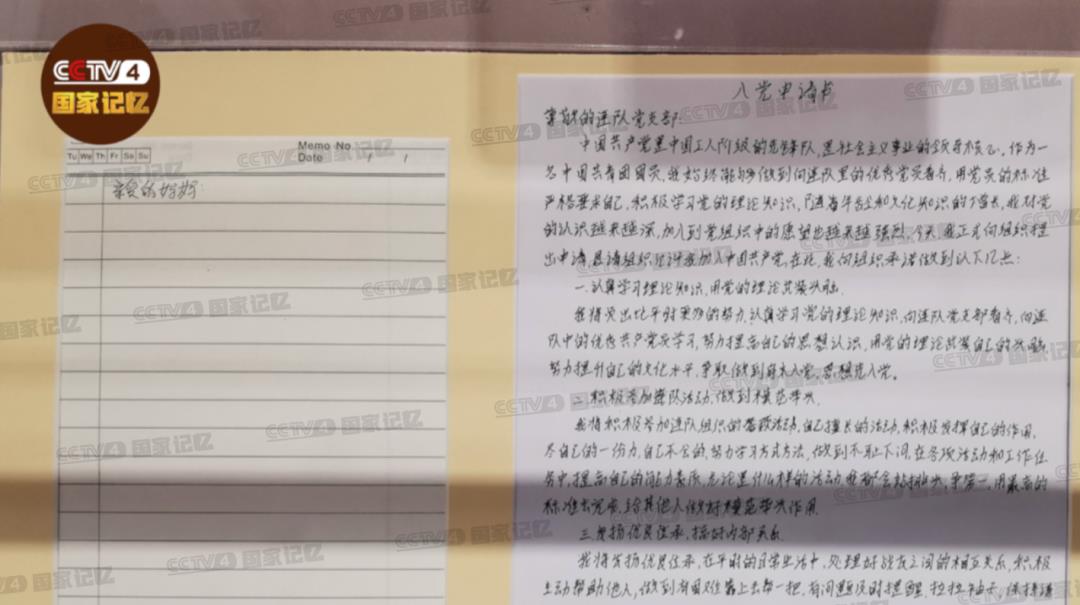 CCTV4
国家记忆
Memo No
Tu We Th Fr Sa Su
Date / /
亲爱的妈妈:
入党申请书
的连队党支部:
中国共产党是中国工人阶级的先锋队,是社会主义事业的领导核心,作为一
名中国共青团团员,我始终做到向连队里的优秀党员看齐,用党员的标准
严格要求自己,积极学习党的理论知识,随着年龄和文化知识的增长,我对党
的认识越来越深,加入到党组织中的愿望也越来越强烈,今天我正式向组织提
出申请,加入中国共产党,在此,我向组织承诺做到以下几点:
一.认真学习理论知识,用党的理论武装头脑.
我将突出比平时更多的努力,认真学习党的理论知识,向连队党支部看齐,向连
队中的优秀共产党员学习,努力提高自己的思想认识,用党的理论武装自己的头脑
努力提升自己的文化水平,争取做到 思想先入党。
二.积极参加连队活动,做到模范带头.
我将积极参加连队组织的各项活动,自己擅长的活动,积极发挥自己的作用,
尽自己的一份力,自己不会的,努力学习方式方法,做到不耻下问,在各项活动和工作任
务中,提高自己的能力素质,无论是什么样的活动 争第一,用最高的
标准去完成,给其他人做好模范带头作用.
三.发扬优良传承,搞好内部关系
我将发扬优良传承,在平时的日常生活中,处理好战友之间的相互关系,积极
主动帮助他人,做到有困难靠上去帮一把,有问题及时提醒,拉拉袖子,